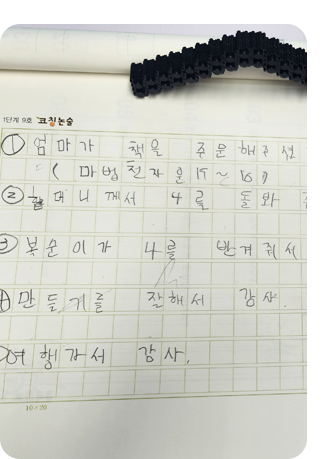 1단계 9호 코칭논술
① 엄마가 책을 주문해주셔
( 마법천자문 15~16)
② 할머니께서 나를 돌봐
③ 복순이가 나를 반겨줘서
④ 만들기를 잘해서 감사.
여행가서 감사.
10×20